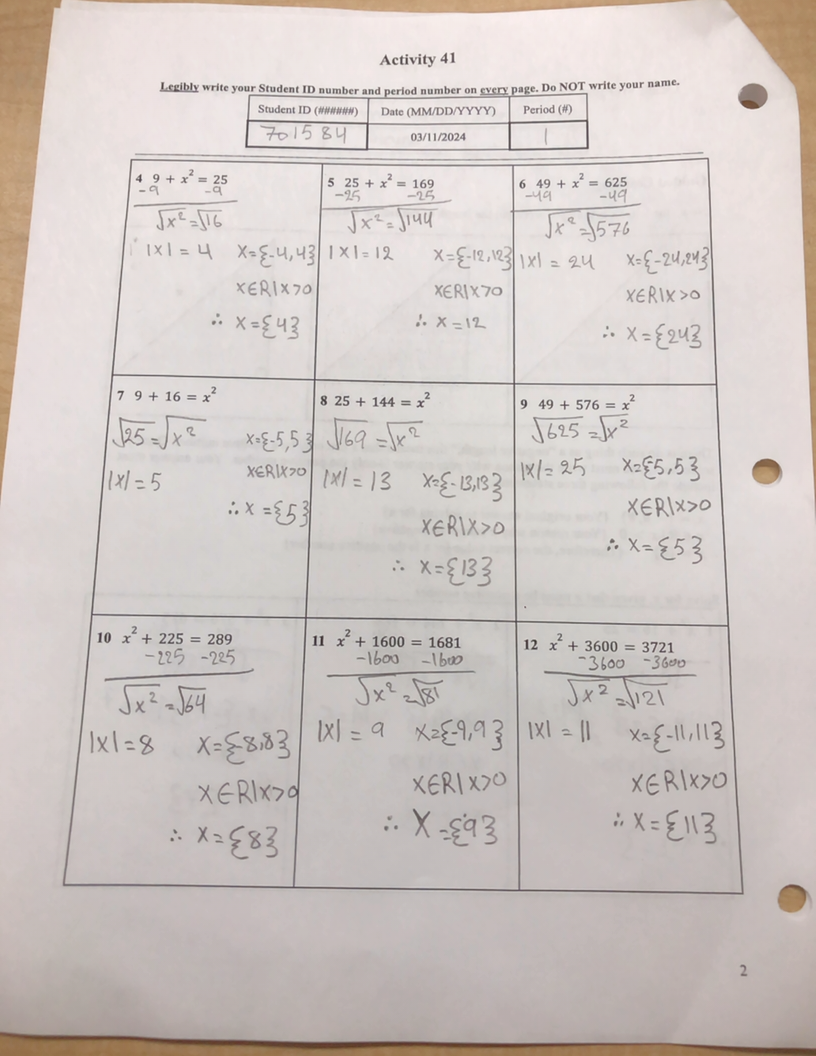 Activity 41
Legibly write your Student ID number and period number on every page. Do NOT write your name.
Student ID (######) Date (MM/DD/YYYY) Period (#)
701584 03/11/2024 1
4 9 + x² = 25
-9 -9
√x² = √16
|x| = 4 x={-4,4}
x∈R|x>0
∴ x={4}
5 25 + x² = 169
-25 -25
√x² = √144
|x| = 12 x={-12,12}
x∈R|x>0
∴ x = 12
6 49 + x² = 625
-49 -49
√x² = √576
|x| = 24 x={-24,24}
x∈R|x>0
∴ x={24}
7 9 + 16 = x²
√25 = √x² x={-5,5}
|x| = 5 x∈R|x>0
∴ x={5}
8 25 + 144 = x²
√169 = √x²
|x| = 13 x={-13,13}
x∈R|x>0
∴ x={13}
9 49 + 576 = x²
√625 = √x²
|x| = 25 x={5,5}
x∈R|x>0
∴ x={5}
10 x² + 225 = 289
-225 -225
√x² = √64
|x| = 8 x={-8,8}
x∈R|x>0
∴ x={8}
11 x² + 1600 = 1681
-1600 -1600
√x² = √81
|x| = 9 x={-9,9}
x∈R|x>0
∴ x={9}
12 x² + 3600 = 3721
-3600 -3600
√x² = √121
|x| = 11 x={-11,11}
x∈R|x>0
∴ x={11}
2